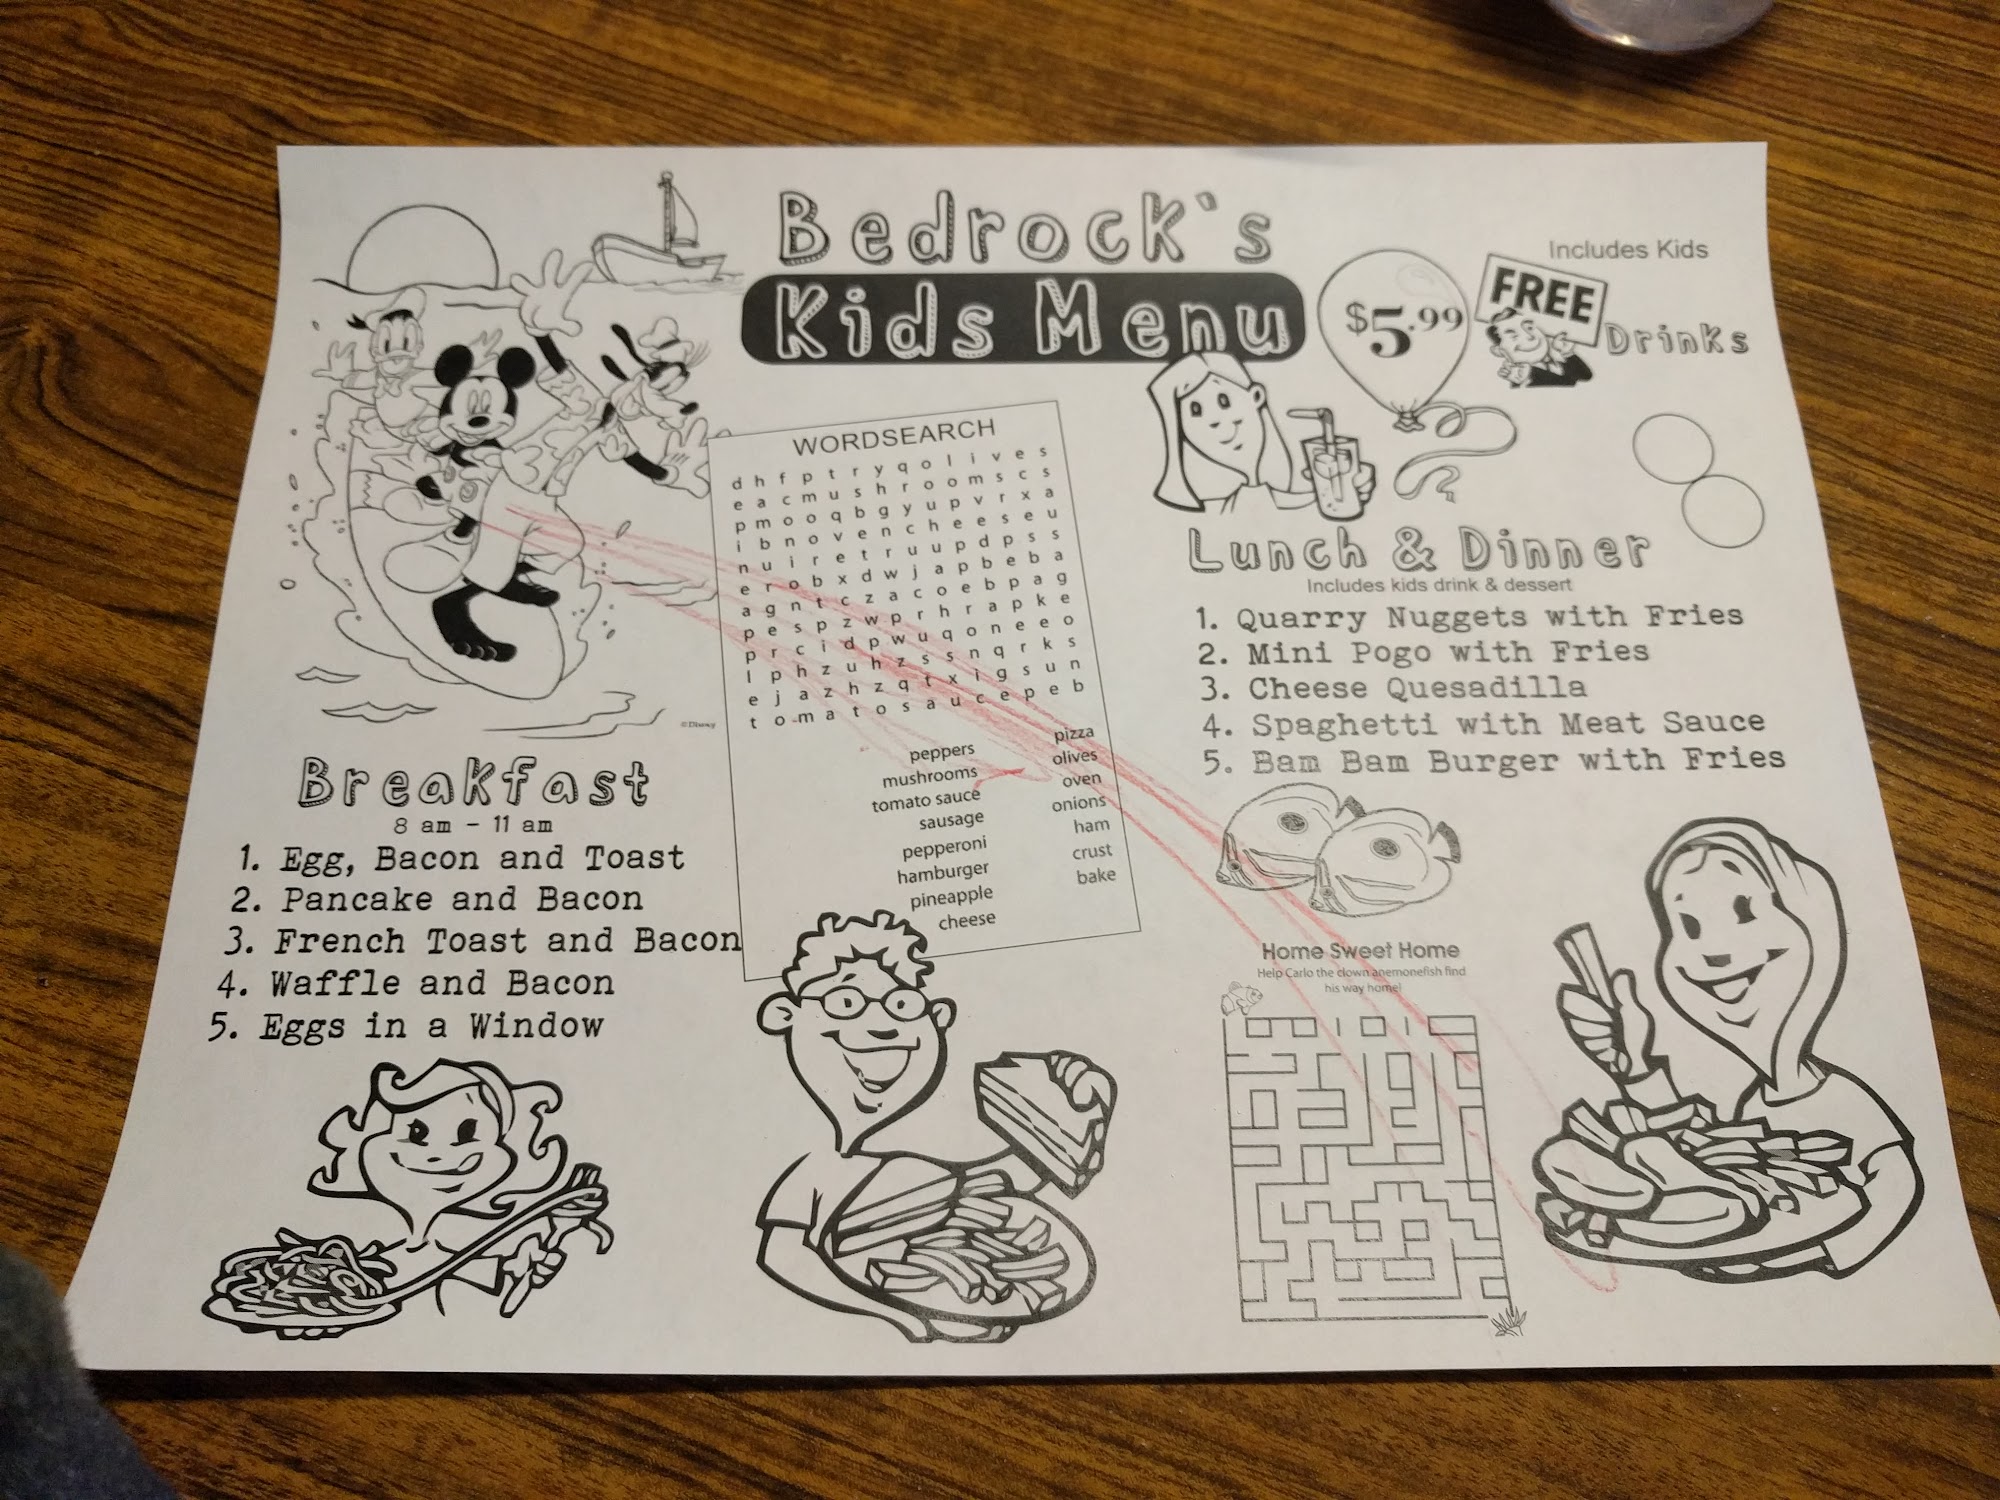 Bedrock's
Kids Menu
$5.99
Includes Kids
FREE
Drinks
WORDSEARCH
d h f p t r y q o l i v e s
e a c m u s h r o o m s c s
p m o o q b g y u p v r x a
i b n o v e n c h e e s e u
n u i r e t r u u p d p s s
e r o b x d w j a p b e b a
a g n t c z a c o e b p a g
p e s p z w p r h r a p k e
p r c i d p w u q o n e e o
l p h z u h z s s n q r k s
e j a z h z q t x i g s u n
t o m a t o s a u c e p e b
peppers
mushrooms
tomato sauce
sausage
pepperoni
hamburger
pineapple
cheese
pizza
olives
oven
onions
ham
crust
bake
©Disney
Breakfast
8 am - 11 am
1. Egg, Bacon and Toast
2. Pancake and Bacon
3. French Toast and Bacon
4. Waffle and Bacon
5. Eggs in a Window
Lunch & Dinner
Includes kids drink & dessert
1. Quarry Nuggets with Fries
2. Mini Pogo with Fries
3. Cheese Quesadilla
4. Spaghetti with Meat Sauce
5. Bam Bam Burger with Fries
Home Sweet Home
Help Carlo the clown anemonefish find
his way home!